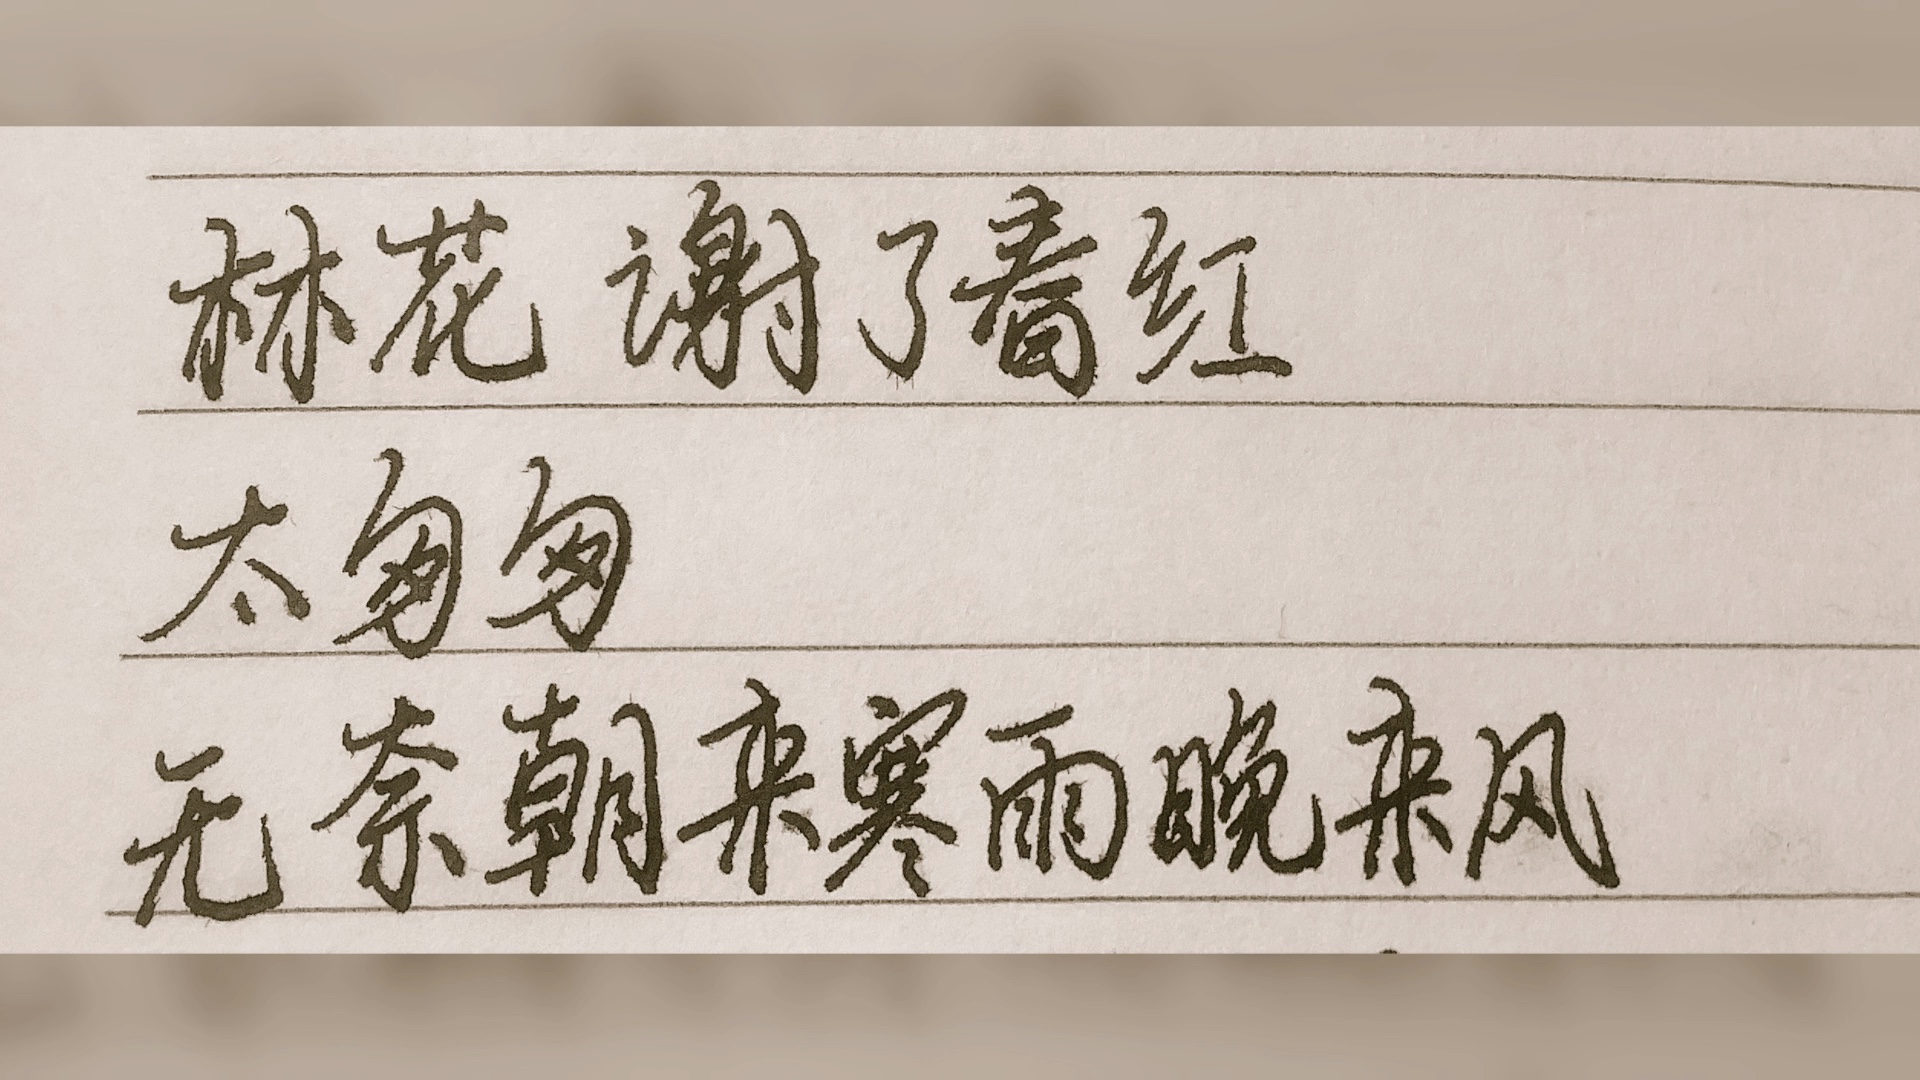 林花谢了春红
太匆匆
无奈朝来寒雨晚来风